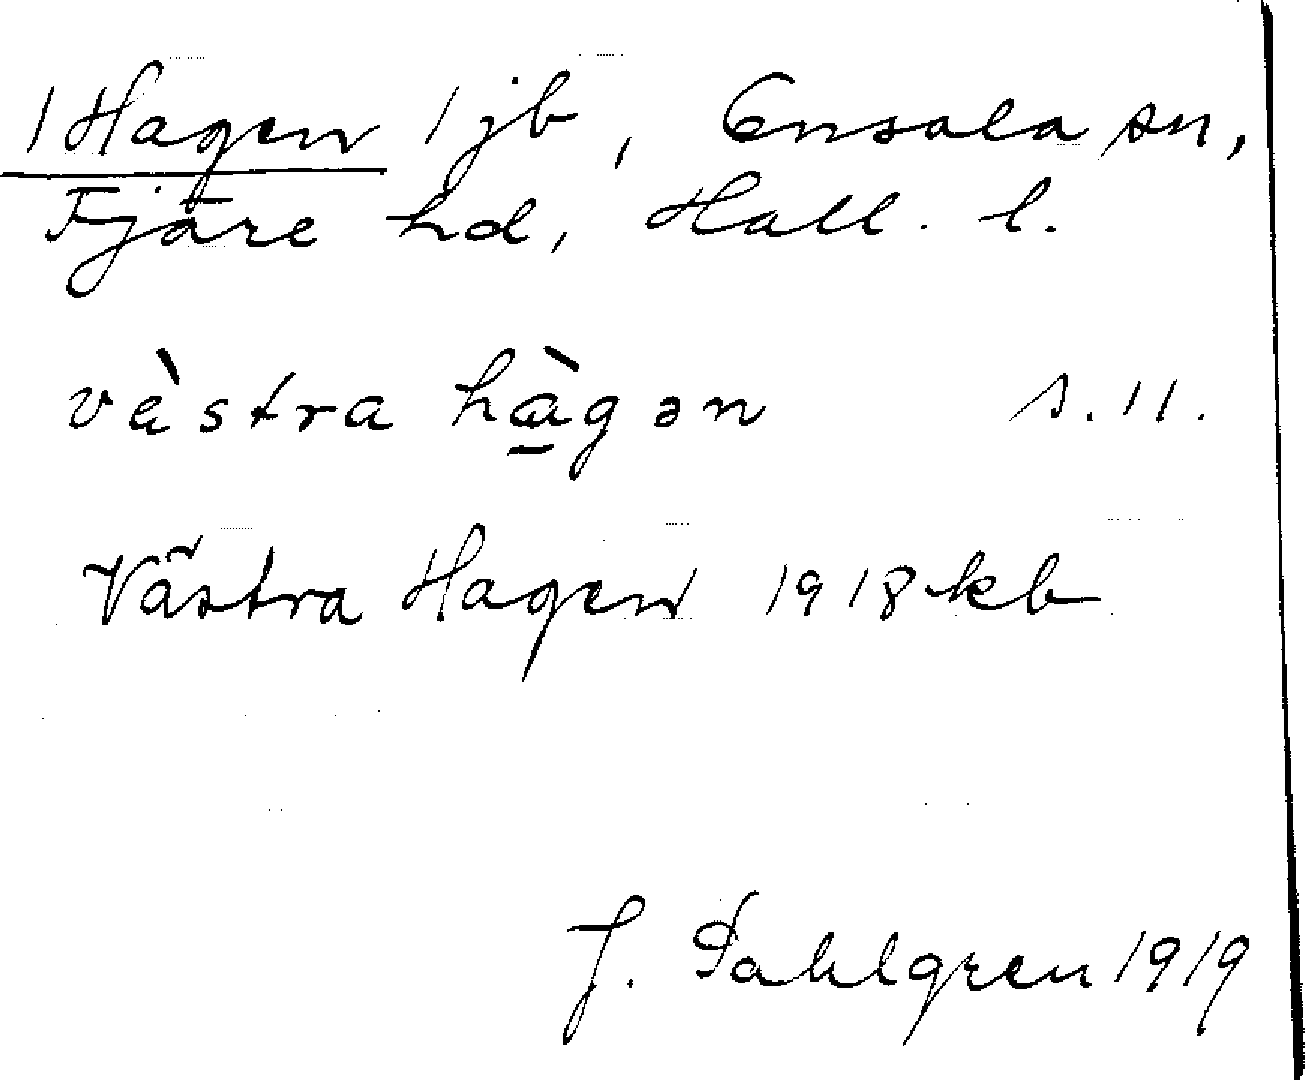 1 Hagen 1 jb, Onsala sn,
Fjäre hd, Hall. l.
vὲstra hà̱gən s. 11.
Västra Hagen 1918 kb
J. Dahlgren 1919